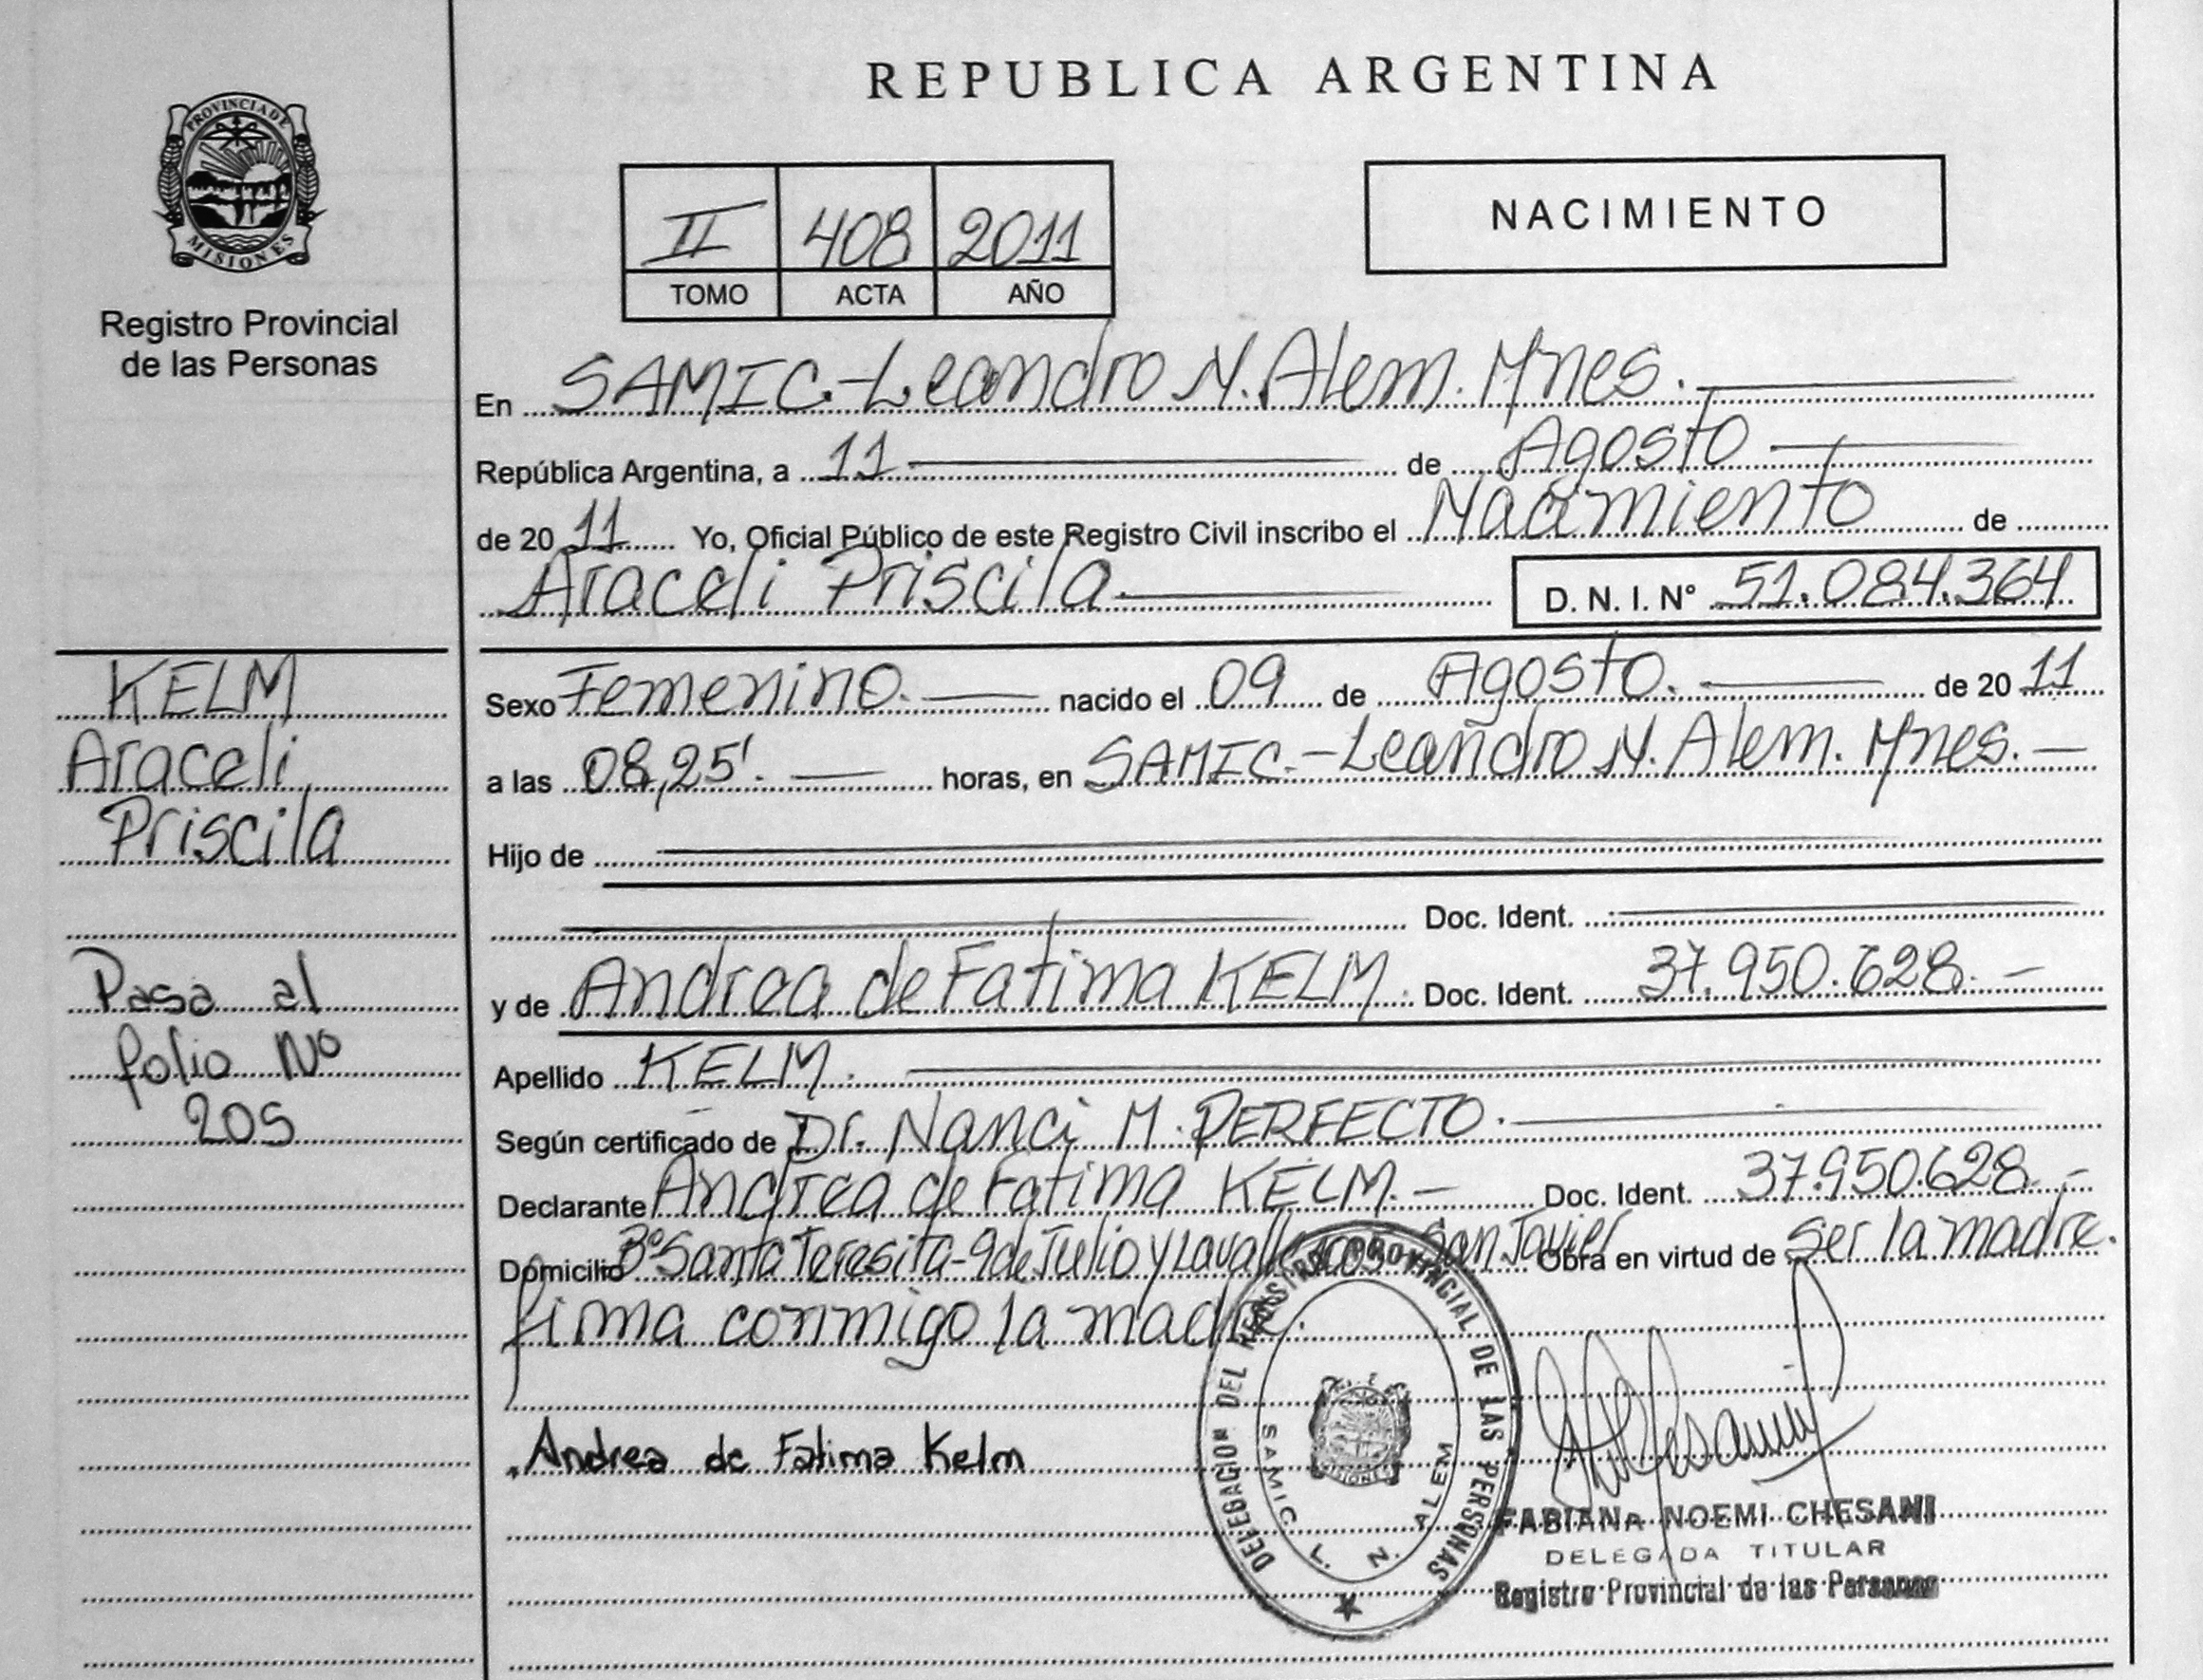 PROVINCIA DE
MISIONES
Registro Provincial
de las Personas
KELM
Araceli
Priscila
Pasa al
folio Nº
205
REPUBLICA ARGENTINA
II 408 2011
TOMO ACTA AÑO
NACIMIENTO
En SAMIC.-Leandro N. Alem. Mnes.
República Argentina, a 11 de Agosto
de 20 11 Yo, Oficial Público de este Registro Civil inscribo el Nacimiento de
Araceli Priscila D. N. I. Nº 51.084.364
Sexo Femenino. nacido el 09 de Agosto. de 20 11
a las 08,25'. horas, en SAMIC.-Leandro N. Alem. Mnes.-
Hijo de
Doc. Ident.
y de Andrea de Fatima KELM. Doc. Ident. 37.950.628.-
Apellido KELM.
Según certificado de Dr. Nanci M. PERFECTO.
Declarante Andrea de Fatima KELM.- Doc. Ident. 37.950.628.-
Domicilio Bº Santa Teresita-9 de Julio y San Javier Obra en virtud de ser la madre.
firma conmigo la madre.
Andrea de Fatima Kelm
DELEGACION DEL REGISTRO PROVINCIAL DE LAS PERSONAS
SAMIC L. N. ALEM
MISIONES
FABIANA NOEMI CHESANI
DELEGADA TITULAR
Registro Provincial de las Personas